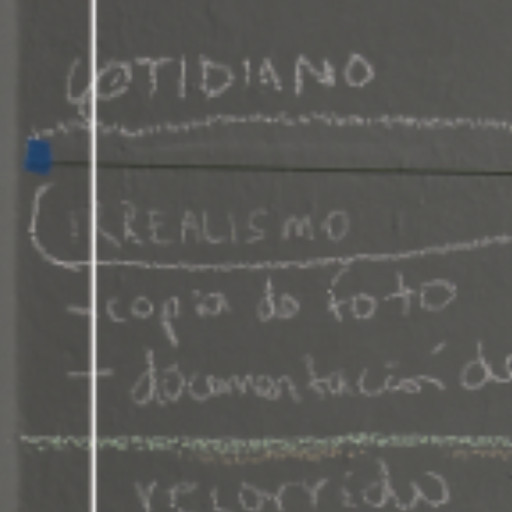 COTIDIANO
IRREALISMO
- copia de foto
- documentación de
recorrido